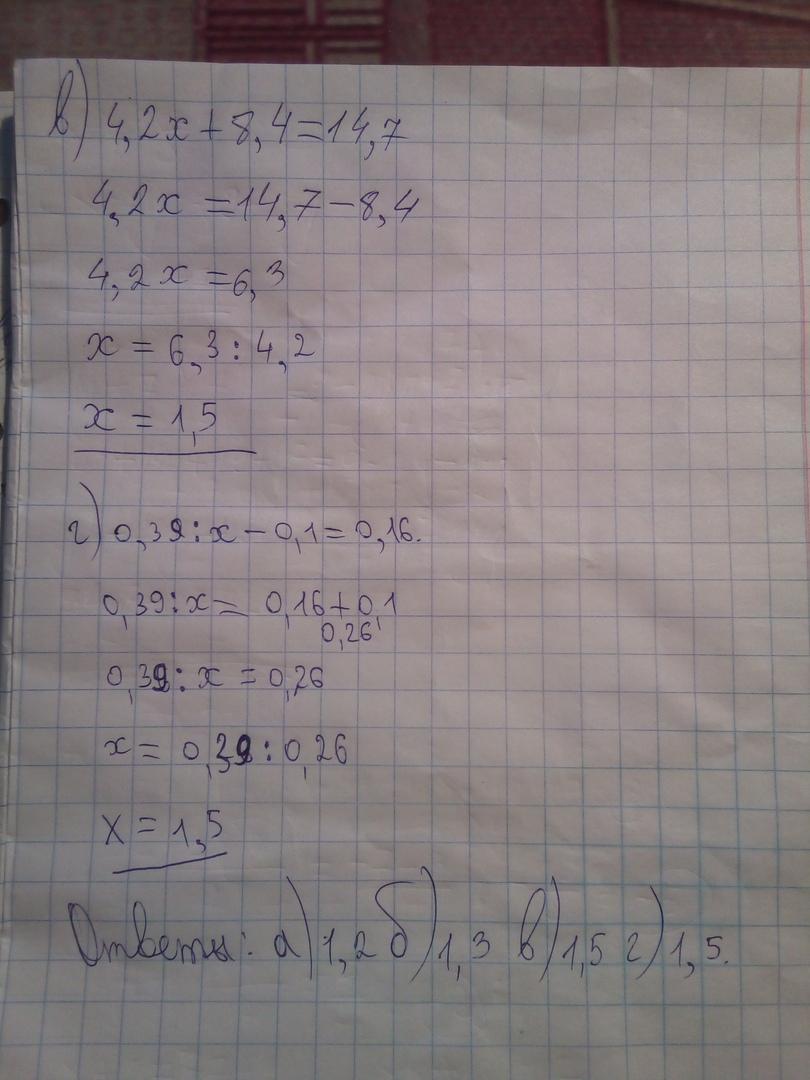 в) 4,2x + 8,4 = 14,7
4,2x = 14,7 - 8,4
4,2x = 6,3
x = 6,3 : 4,2
x = 1,5
г) 0,39 : x - 0,1 = 0,16.
0,39 : x = 0,16 + 0,1
0,26
0,39 : x = 0,26
x = 0,39 : 0,26
x = 1,5
Ответы: а) 1,2 б) 1,3 в) 1,5 г) 1,5.